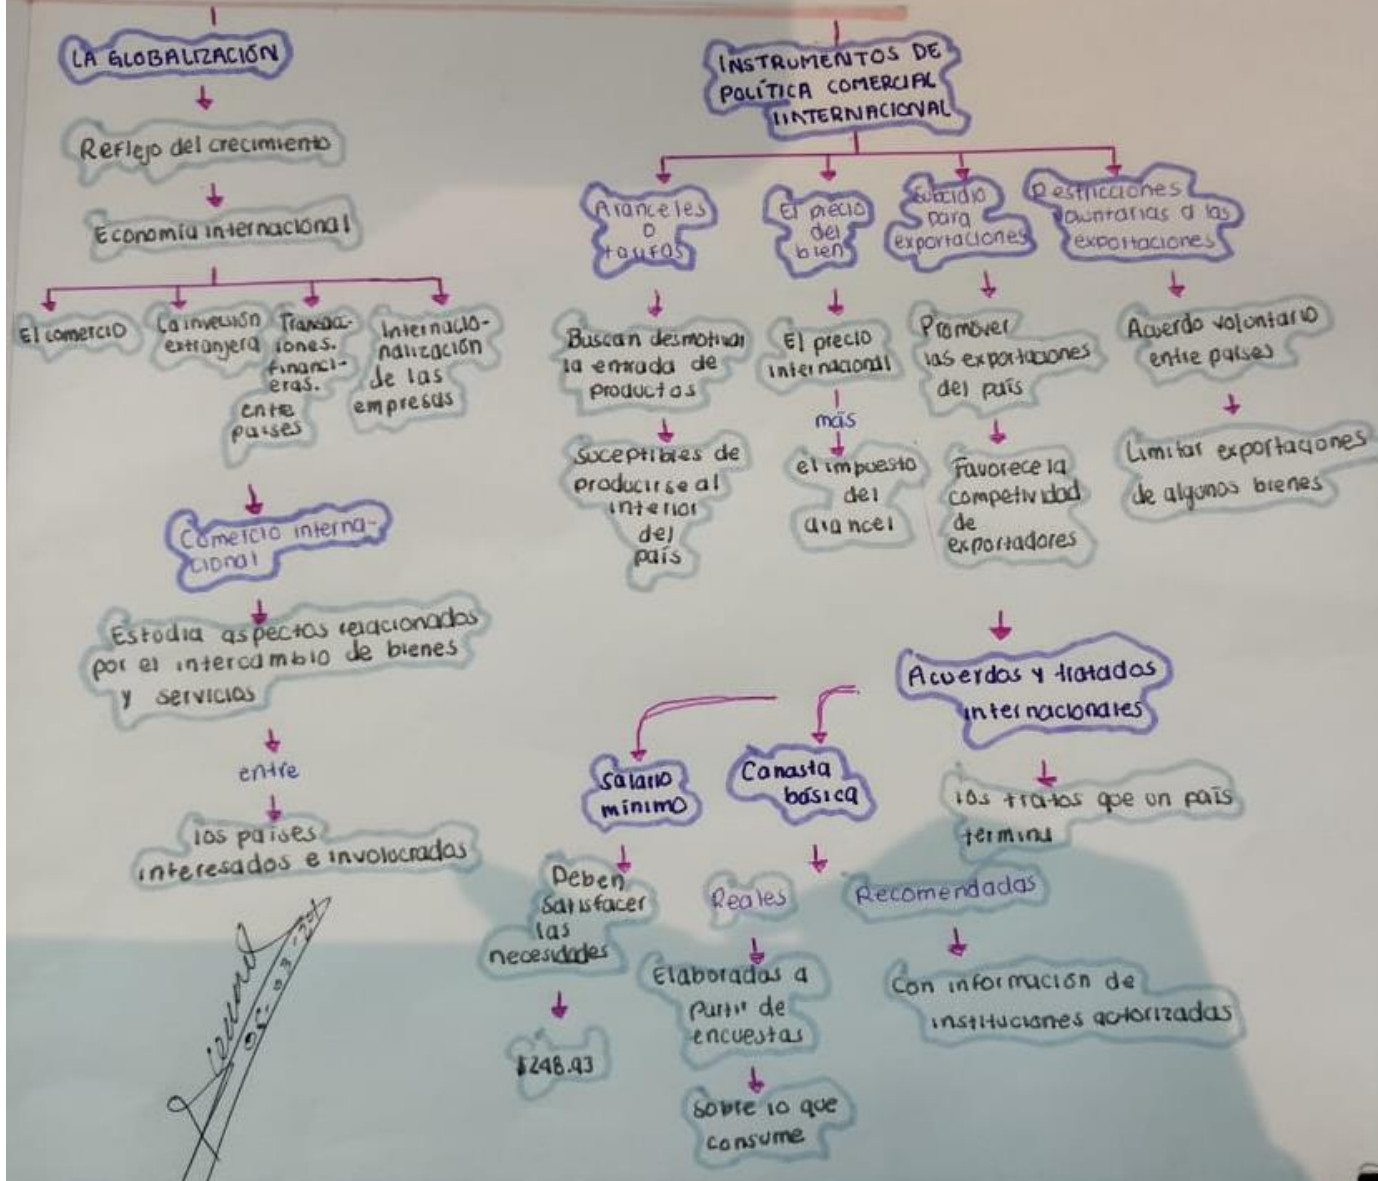 LA GLOBALIZACIÓN
Reflejo del crecimiento
Economía internacional
El comercio
La inversión
extranjera
Transacc-
iones.
financi-
eras.
entre
países
Internacio-
nalización
de las
empresas
Comercio interna-
cional
Estudia aspectos relacionados
por el intercambio de bienes
y servicios
entre
los países
interesados e involocrados
INSTRUMENTOS DE
POLÍTICA COMERCIAL
IINTERNACIONAL
Aranceles
o
tarifas
Buscan desmotivar
la entrada de
productos
Suceptibles de
producirse al
interior
del
país
El precio
del
bien
El precio
internacional
más
el impuesto
del
arancel
Subsidio
para
exportaciones
Promover
las exportaciones
del país
Favorece la
competividad
de
exportadores
Restricciones
voluntarias a las
exportaciones
Acuerdo voluntario
entre países
Limitar exportaciones
de algunos bienes
Acuerdos y tratados
internacionales
los tratos que un país
termina
Salario
mínimo
Deben
satisfacer
las
necesidades
$248.93
Canasta
básica
Reales
Elaboradas a
partir de
encuestas
sobre lo que
consume
Recomendadas
Con información de
instituciones actorizadas